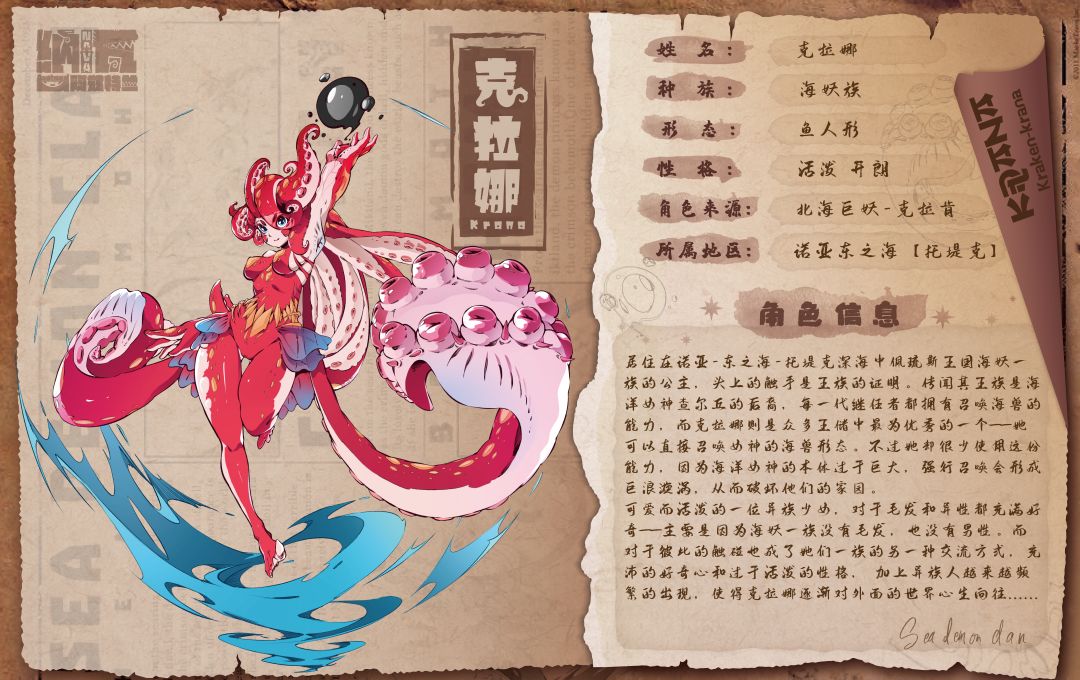 克拉娜
Krana
姓 名：
克拉娜
种 族：
海妖族
形 态：
鱼人形
性 格：
活泼 开朗
角色来源：
北海巨妖-克拉肯
所属地区：
诺亚东之海【托堤克】
Kraken-krana
角色信息
居住在诺亚-东之海-托堤克深海中佩琉斯王国海妖一
族的公主，头上的触手是王族的证明。传闻其王族是海
洋女神查尔丘的后裔，每一代继任者都拥有召唤海兽的
能力，而克拉娜则是众多王储中最为优秀的一个——她
可以直接召唤女神的海兽形态。不过她却很少使用这份
能力，因为海洋女神的本体过于巨大，强行召唤会形成
巨浪漩涡，从而破坏他们的家园。
可爱而活泼的一位异族少女，对于毛发和异性都充满好
奇——主需是因为海妖一族没有毛发，也没有男性。而
对于彼此的触碰也成了她们一族的另一种交流方式，充
沛的好奇心和过于活泼的性格， 加上异族人越来越频
繁的出现，使得克拉娜逐渐对外面的世界心生向往......
Sea demon clan